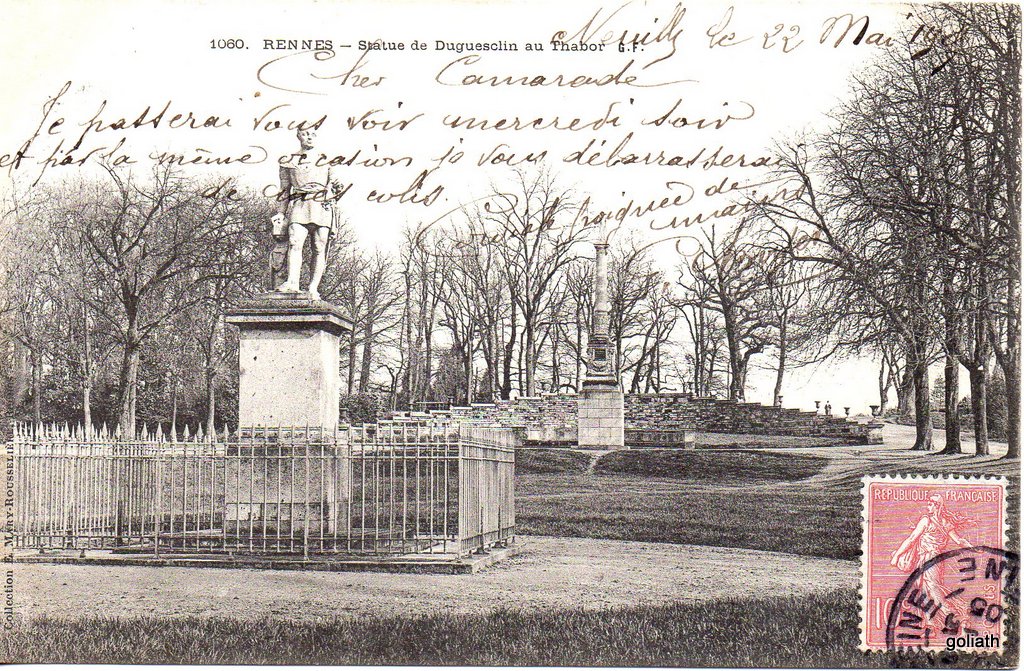 1060. RENNES – Statue de Duguesclin au Thabor G.F.
Neuilly le 22 Mai
Cher Camarade
Je passerai vous voir mercredi soir
et par la même occasion je vous débarrasserai
de mes colis.
poignée de
main
Collection E. MARY-ROUSSELIÈRE
RÉPUBLIQUE FRANÇAISE
10
goliath